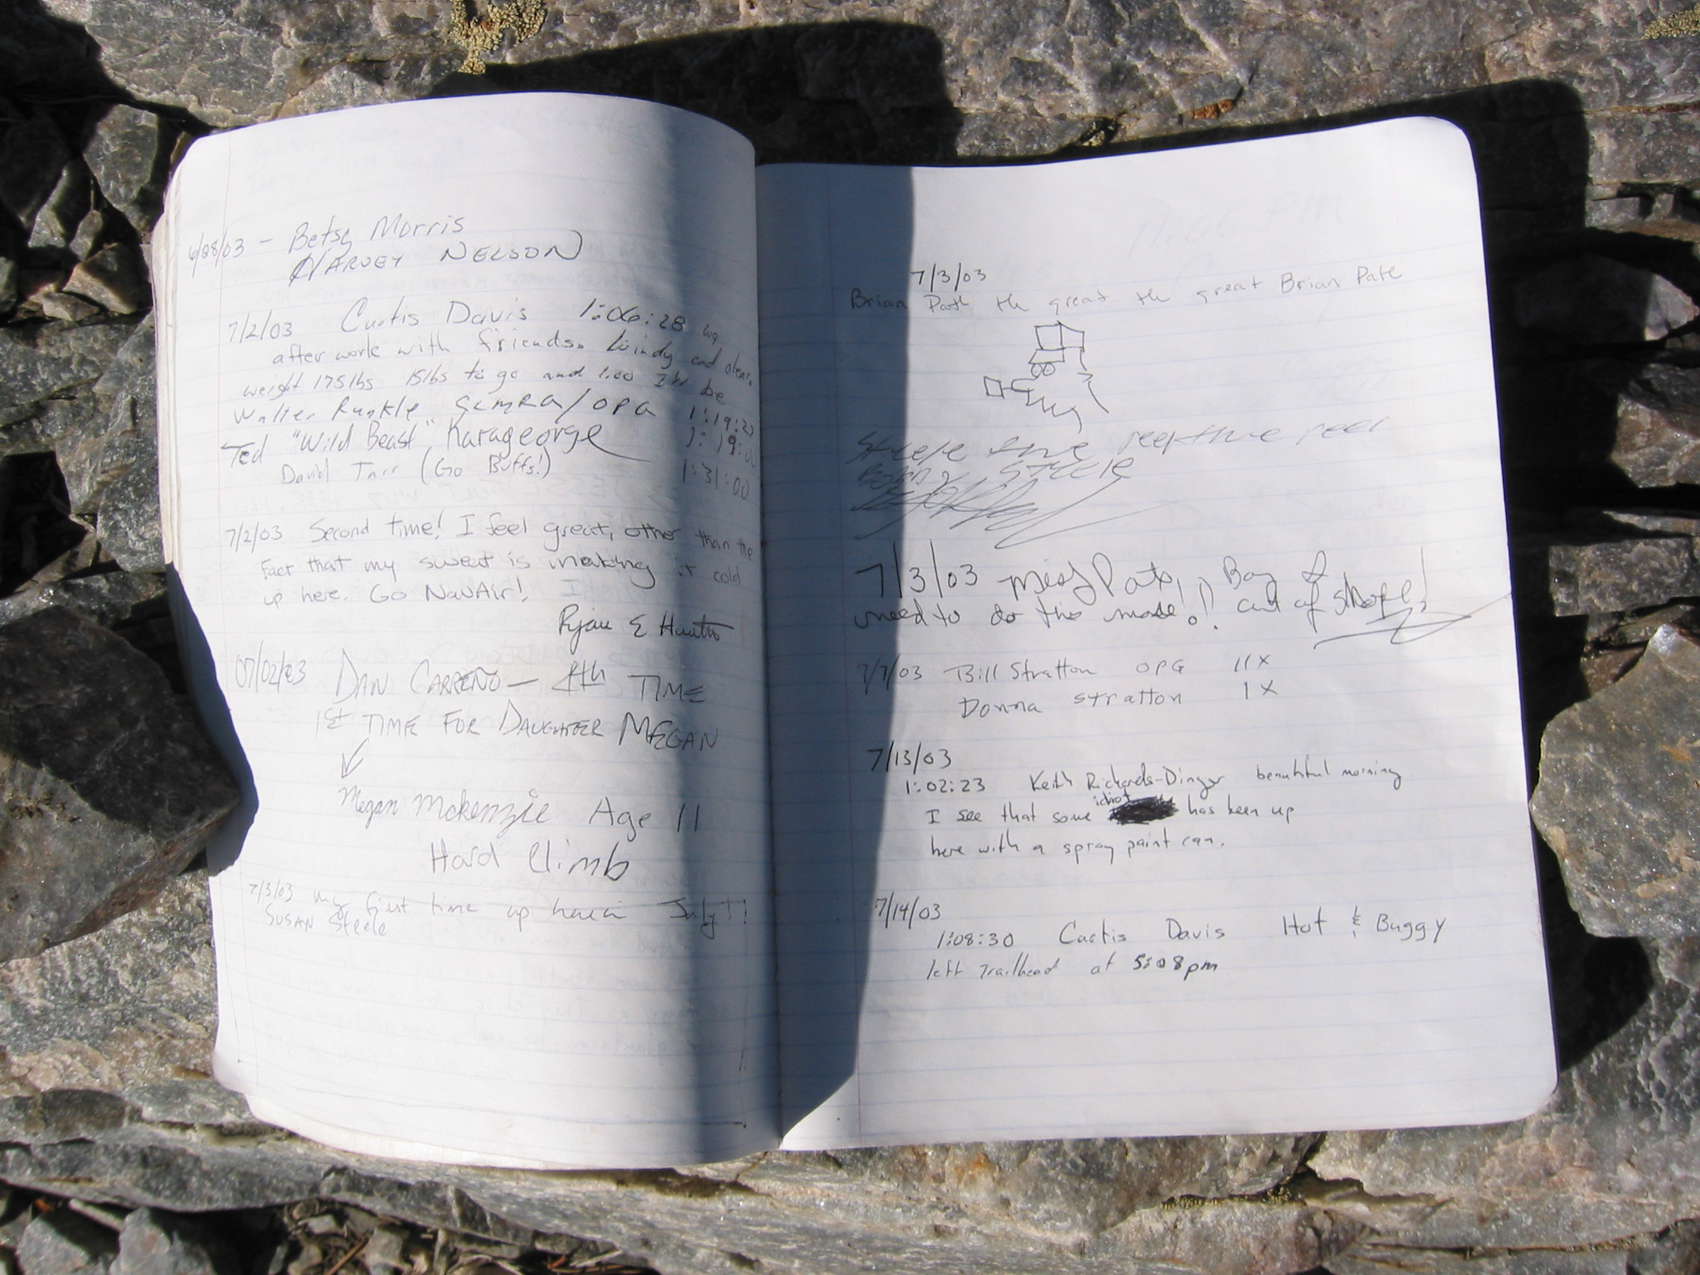 6/28/03 - Betsy Morris
HARVEY NELSON
7/2/03 Curtis Davis 1:06:28
after work with friends. Windy and clear.
weight 175lbs 15lbs to go and 1:00 I'll be
Walter Runkle GCMRG/OPG 1:19:23
Ted "Wild Beast" Karageorge 1:19:
David Tarr (Go Buffs!) 1:31:00
7/2/03 Second time! I feel great, other than the
fact that my sweat is making it cold
up here. Go NavAir!
Ryan E
07/02/03 DAN CARRENO - 4th TIME
1st TIME FOR DAUGHTER MEGAN
Megan Mckenzie Age 11
Hard Climb
7/3/03 my first time up here in July!!
SUSAN Steele
7/3/03
Brian Pate the great the great Brian Pate
Steele
7/3/03 Missy Pate! Boy
need to do this more!! out of shape!
7/7/03 Bill Stratton OPG 11x
Donna Stratton 1x
7/13/03
1:02:23 Keith Richards-Dinger beautiful morning
idiot
I see that some has been up
here with a spray paint can.
7/14/03
1:08:30 Curtis Davis Hot & Buggy
left trailhead at 5:08pm